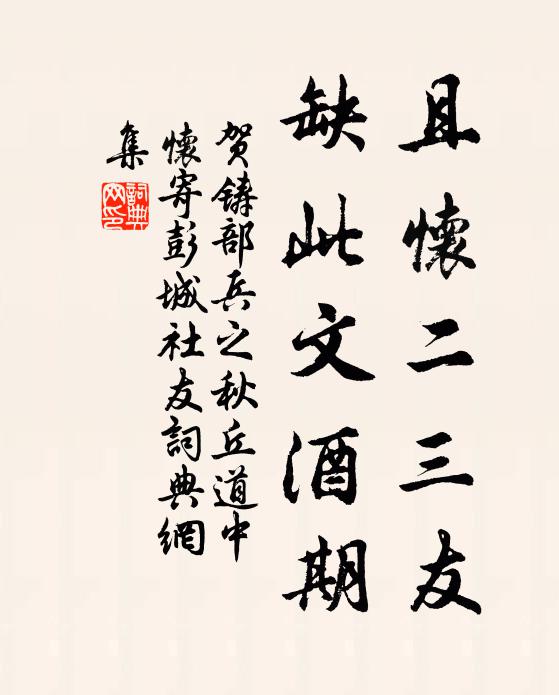 且懷二三友
缺此文酒期
贺鑄部兵之秋丘道中
懷寄彭城社友詞典網
集
詞典
网印